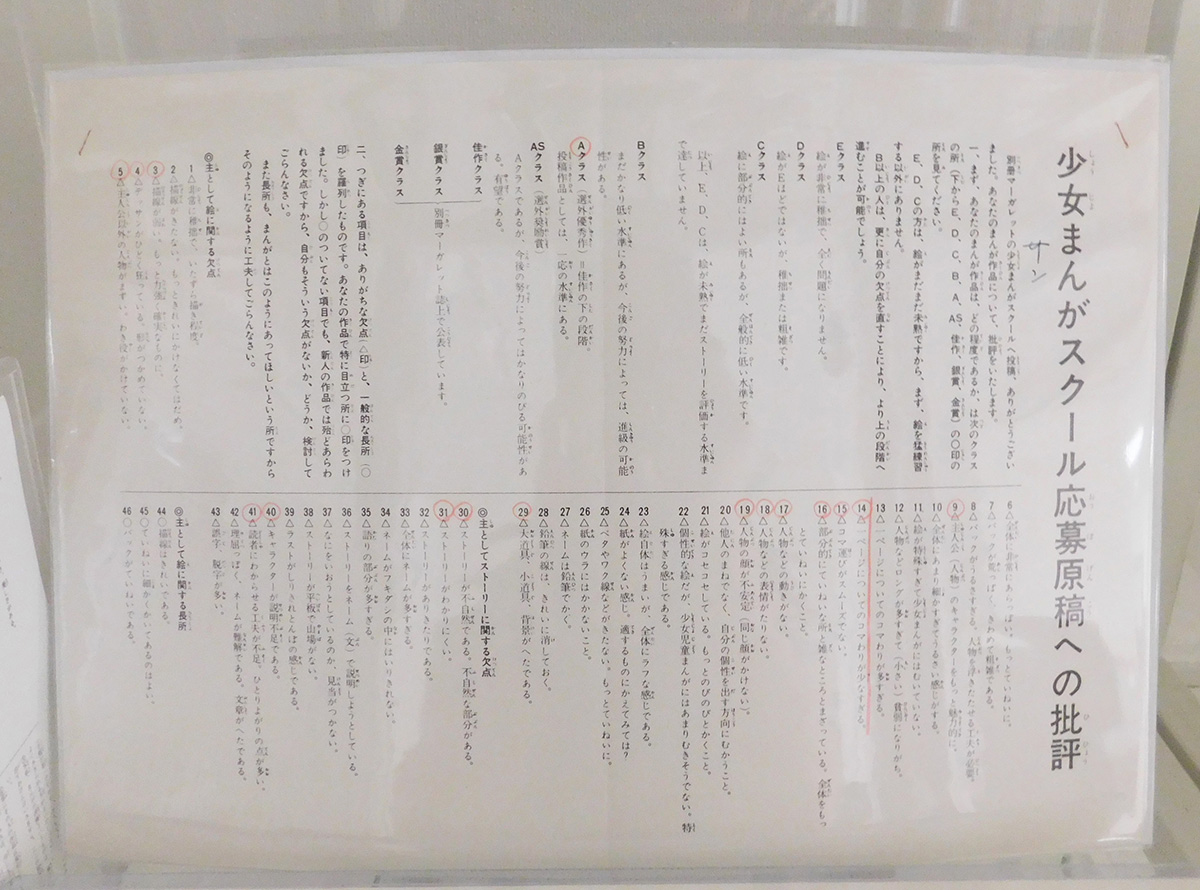 少女まんがスクール応募原稿への批評
サン
別冊マーガレットの少女まんがスクールへ投稿、ありがとうござい
ました。あなたのまんが作品について、批評をいたします。
一、まず、あなたのまんが作品は、どの程度であるか、は次のクラス
の所（下からE、D、C、B、A、AS、佳作、銀賞、金賞）の〇印の
所を見てください。
E、D、Cの方は、絵がまだまだ未熟ですから、まず、絵を猛練習
する以外にありません。
B以上の人は、更に自分の欠点を直すことにより、より上の段階へ
進むことが可能でしょう。
Eクラス
絵が非常に稚拙で、全く問題になりません。
Dクラス
絵がEほどではないが、稚拙または粗雑です。
Cクラス
絵に部分的にはよい所もあるが、全般的に低い水準です。
以上、E、D、Cは、絵が未熟でまだストーリーを評価する水準ま
で達していません。
Bクラス
まだかなり低い水準にあるが、今後の努力によっては、進級の可能
性がある。
Aクラス（選外優秀作）＝佳作の下の段階。
投稿作品としては、一応の水準にある。
ASクラス（選外奨励賞）
Aクラスであるが、今後の努力によってはかなりのびる可能性があ
る。有望である。
佳作クラス
銀賞クラス
別冊マーガレット誌上で公表しています。
金賞クラス
二、つぎにある項目は、ありがちな欠点（△印）と、一般的な長所（〇
印）を羅列したものです。あなたの作品で特に目立つ所に〇印をつけ
ました。しかし〇のついてない項目でも、新人の作品では殆どあらわ
れる欠点ですから、自分もそういう欠点がないか、どうか、検討して
ごらんなさい。
また長所も、まんがとはこのようにあってほしいという所ですから
そのようになるように工夫してごらんなさい。
◎主として絵に関する欠点
1△非常に稚拙で、いたずら描き程度。
2△描線がきたない。もっときれいにかけなくてはだめ。
3△描線が弱い。もっと力強く確実なものに。
4△デッサンがひどく狂っている。形がつかめていない。
5△主人公以外の人物がまずい。わき役がかけていない。
6△全体に非常にあらっぽい。もっとていねいに。
7△バックが荒っぽく、きわめて粗雑である。
8△バックがうるさすぎる。人物を浮きたたせる工夫が必要。
9△主人公（人物）のキャラクターをもっと魅力的に。
10△全体にあまり細かすぎてうるさい感じがする。
11△絵が特殊すぎて少女まんがにはむいていない。
12△人物などロングが多すぎて（小さい）貧弱になりがち。
13△一ページについてのコマワリが多すぎる。
14△一ページについてのコマワリが少なすぎる。
15△コマ運びがスムーズでない。
16△部分的にていねいな所と雑なところとまざっている。全体をもっ
とていねいにかくこと。
17△人物などの動きがない。
18△人物などの表情がたりない。
19△人物の顔が不安定（同じ顔がかけない）。
20△他人のまねでなく、自分の個性を出す方向にむかうこと。
21△絵がコセコセしている。もっとのびのびとかくこと。
22△個性的な絵だが、少女児童まんがにはあまりむきそうでない。特
殊すぎる感じである。
23△絵自体はうまいが、全体にラフな感じである。
24△紙がよくない感じ。適するものにかえてみては？
25△ベタやワク線などがきたない。もっとていねいに。
26△紙のウラにはかかないこと。
27△ネームは鉛筆でかく。
28△鉛筆の線は、きれいに消しておく。
29△大道具、小道具、背景がへたである。
◎主としてストーリーに関する欠点
30△ストーリーが不自然である。不自然な部分がある。
31△ストーリーがわかりにくい。
32△ストーリーがありきたりである。
33△全体にネームが多すぎる。
34△ネームがフキダシの中にはいりきれない。
35△語りの部分が多すぎる。
36△ストーリーをネーム（文）で説明しようとしている。
37△なにをいおうとしているのか、見当がつかない。
38△ストーリーが平板で山場がない。
39△ラストがしりきれとんぼの感じである。
40△キャラクターが説明不足である。
41△読者にわからせる工夫が不足。ひとりよがりの点が多い。
42△理屈っぽく、ネームが難解である。文章がへたである。
43△誤字、脱字が多い。
◎主として絵に関する長所
44〇描線はきれいである。
45〇ていねいに細かくかいてあるのはよい。
46〇バックがていねいである。